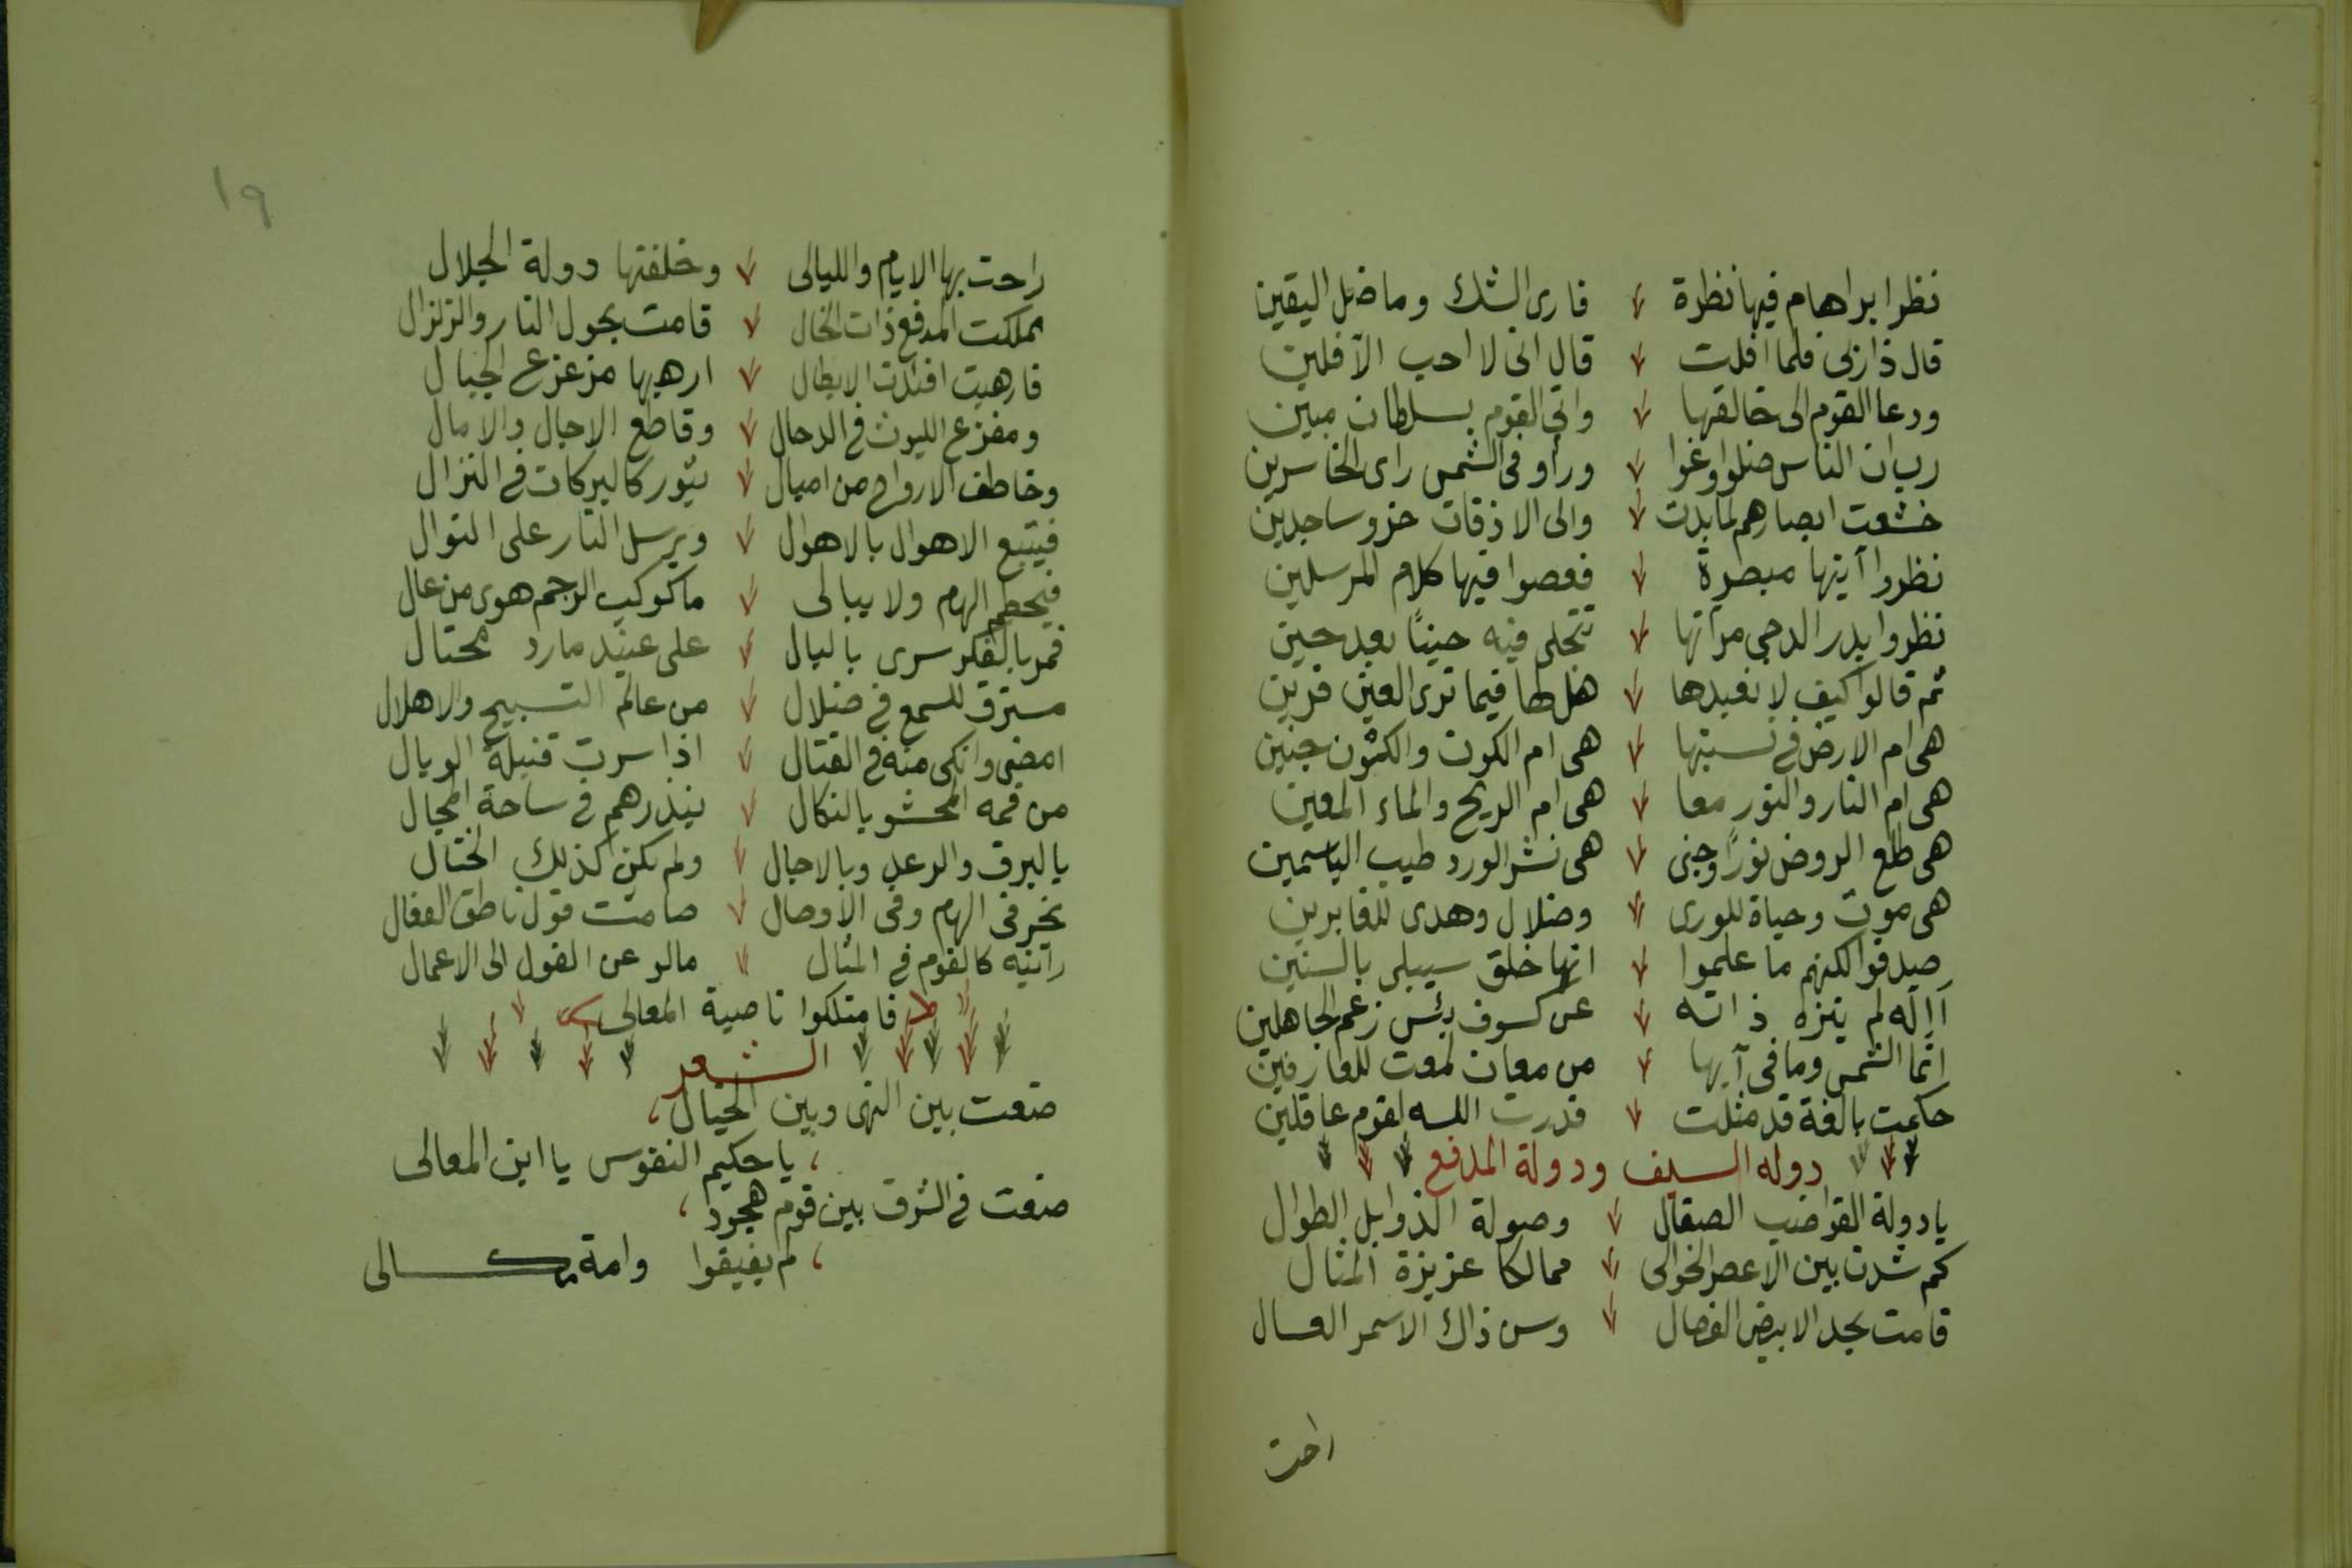 نظرا براهام فيها نظرة فارى الشك وما ضل اليقين
قال ذا ربى فلما افلت قال انى لا احب الآفلين
ودعا القوم الى خالقها واتى القوم بسلطان مبين
رب ان الناس ضلوا وغوا وراو فى الشمس راى الخاسرين
خشعت ابصارهم لما بدت والى الاذقان خرو ساجدين
نظروا آيتها مبصرة فعصوا فيها كلام المرسلين
نظروا بدر الدجى مرآتها تتجلى فيه حينًا بعد حين
ثم قالوا كيف لا نعبدها هل لها فيما ترى العين قرين
هى ام الارض فى نسبتها هى ام الكون والكون جنين
هى ام النار والنور معا هى ام الريح والماء المعين
هى طلع الروض نورًا وجنى هى نشر الورد طيب الياسمين
هى موت وحياة للورى وضلال وهدى للغابرين
صدقوا لكنهم ما علموا انها خلق سيبلى بالسنين
أاله لم ينزه ذاته عن كسوف بئس زعم الجاهلين
انما الشمس وما فى آيها من معان لمعت للعارفين
حكمت بالغة قد مثلت قدرت الله لقوم عاقلين
دوله السيف ودولة المدفع
يا دولة القواضب الصقال وصولة الذوابل الطوال
كم شدت بين الاعصر الخوالى ممالكا عزيزة المثال
قامت بحد الابيض الفصال وسن ذاك الاسمر العسال
راحت
١٩
راحت بها الايام والليالى وخلفتها دولة الجلال
مملكت المدفع ذات الخال قامت بحول النار والزلزال
فارهبت افئدت الابطال ارهبها مزعزع الجبال
ومفزع الليوث فى الدحال وقاطع الاجال والامال
وخاطف الارواح من اميال يثور كالبركات فى النزال
فيتبع الاهوال بالاهوال ويرسل النار على التوال
فيحطم الهام ولا يبالى ما كوكب الرجم هوى من عال
فمر بالفكر سرى بالبال على عنيد مارد محتال
مسترق للسمع فى ضلال من عالم التسبيح والاهلال
امضى وانكى منه فى القتال اذا سرت قنبلة الوبال
من فمه المحشو بالنكال ينذرهم فى ساحة المجال
بالبرق والرعد وبالاجال ولم يكن كذلك الختال
تخر فى الهام وفى الأوصال صامت قول ناطق الفعال
رايته كالقوم فى المثال مالو عن القول الى الاعمال
فامتلكوا ناصية المعالى
الشعر
ضعت بين النهى وبين الخيال
يا حكيم النفوس يا ابن المعالى
ضعت فى الشرق بين قوم هجود
لم يفيقوا وامة مكسالى